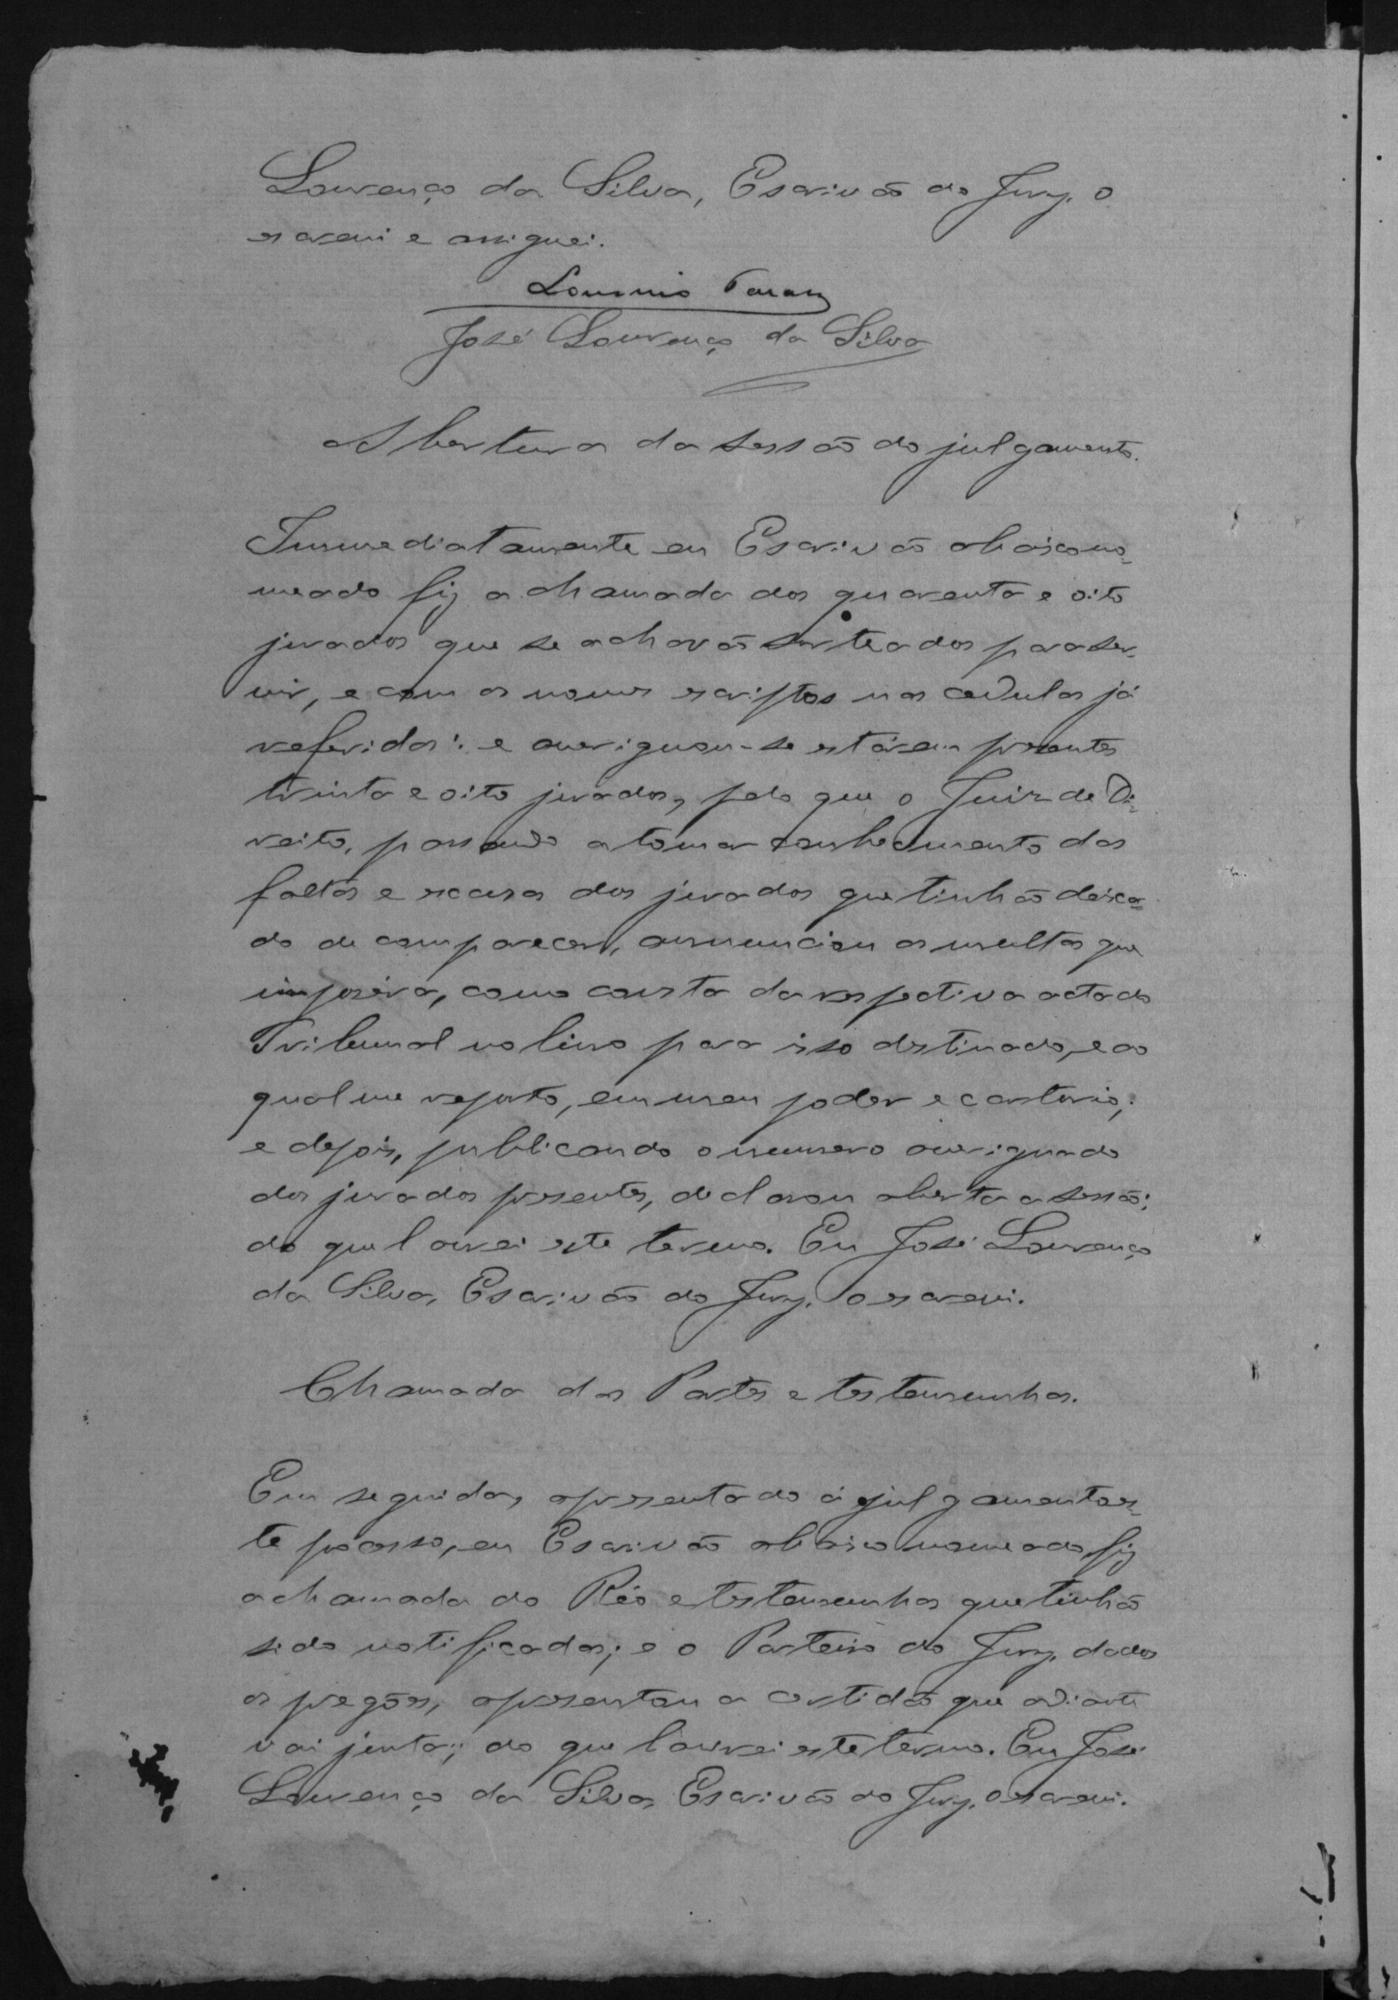 Lourenço da Silva, Escrivão do Jury, o
escrevi e assignei.
José Lourenço da Silva
Abertura da sessão do julgamento.
Immediatamente eu Escrivão abáixo no-
meado fiz a chamada dos quarenta e oito
jurados que se achavão sorteados para ser-
vir, e com os nomes escriptos nas cedulas já
referidas: e averiguou-se estárem presentes
trinta e oito jurados, pelo que o Juiz de Di-
reito, passando a tomar conhecimento das
faltas e escusas dos jurados que tinhão deixa-
do de comparecer, annunciou as multas que
impozéra, como consta da respectiva acta do
Tribunal no livro para isso destinado, e ao
qual me reporto, em meu poder e cartorio;
e depois, publicando o numero averiguado
dos jurados presentes, declarou aberta a sessão;
do que lavrei este termo. Eu José Lourenço
da Silva, Escrivão do Jury, o escrevi.
Chamada das Partes e testemunhas.
Em seguida, apresentado á julgamento es-
te processo, eu Escrivão abáixo nomeado, fiz
a chamada do Réo e testemunhas que tinhão
sido notificadas; e o Porteiro do Jury, dados
os pregões, apresentou a certidão que adiante
vai junta; do que lavrei este termo. Eu José
Lourenço da Silva, Escrivão do Jury, o escrevi.